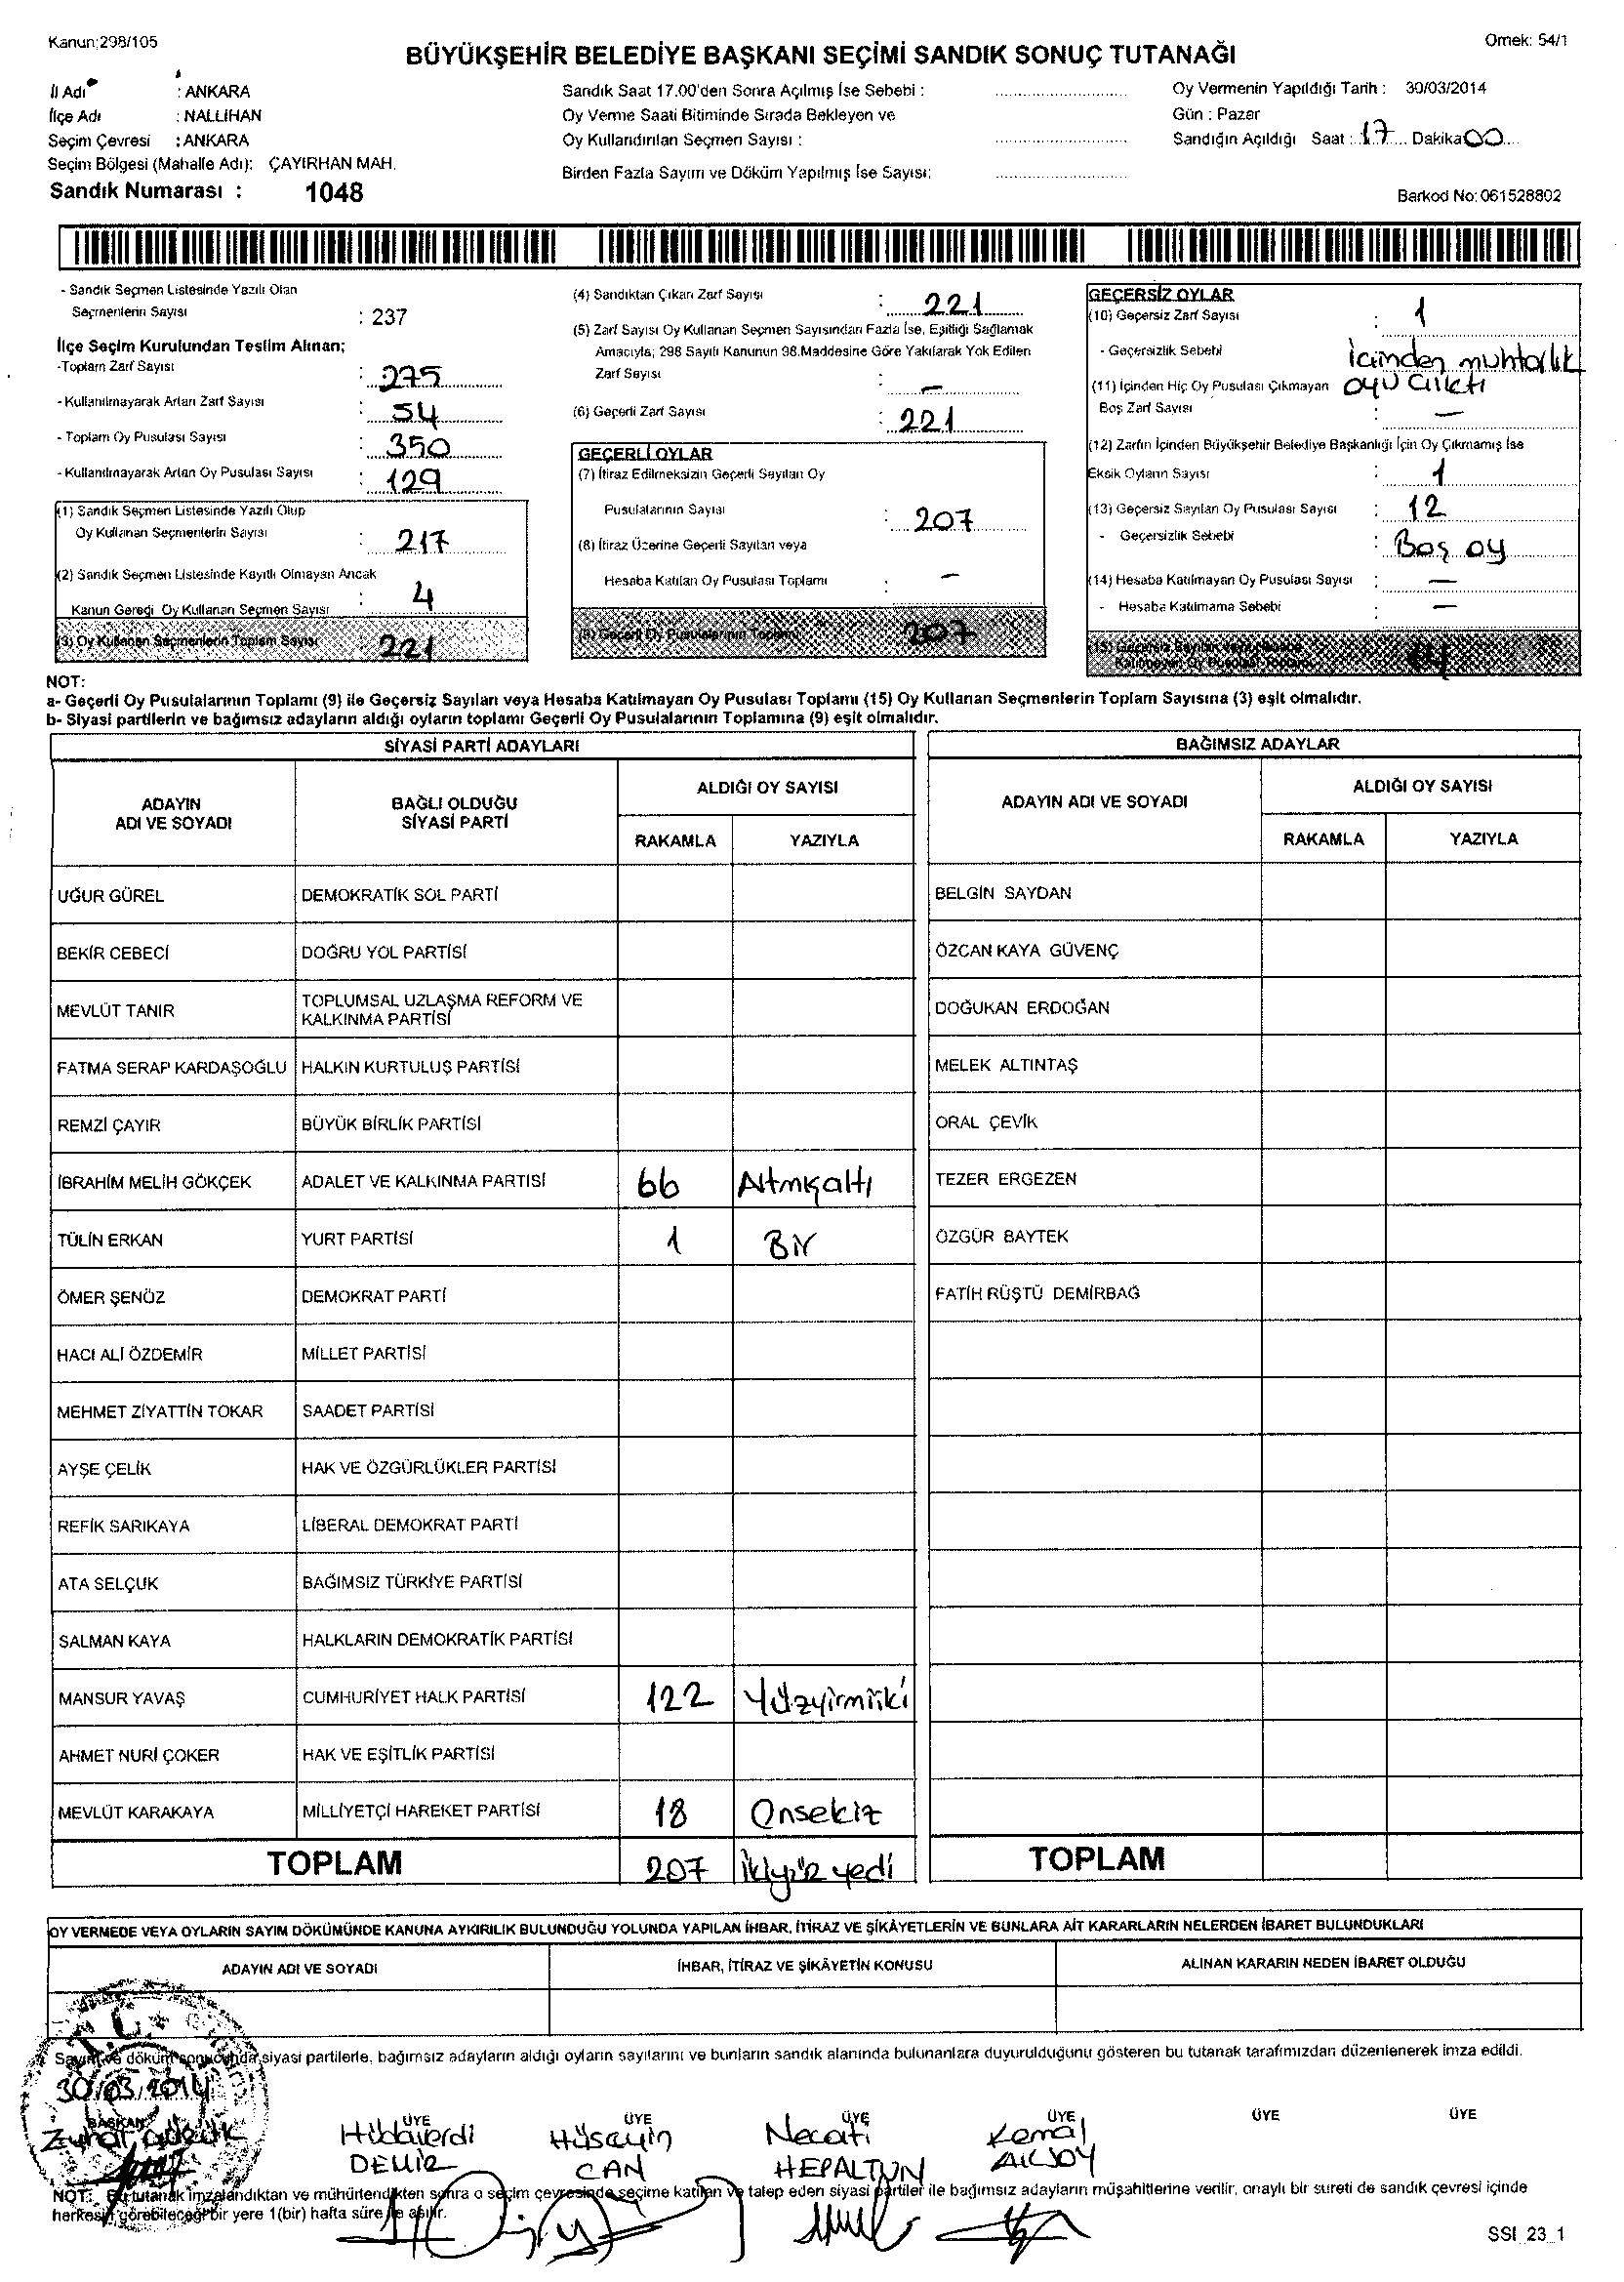 Kanun:298/105
Örnek: 54/1
BÜYÜKŞEHİR BELEDİYE BAŞKANI SEÇİMİ SANDIK SONUÇ TUTANAĞI
İl Adı : ANKARA
İlçe Adı : NALLIHAN
Seçim Çevresi : ANKARA
Seçim Bölgesi (Mahalle Adı): ÇAYIRHAN MAH.
Sandık Numarası : 1048
Sandık Saat 17.00'den Sonra Açılmış İse Sebebi : ................
Oy Verme Saati Bitiminde Sırada Bekleyen ve
Oy Kullandırılan Seçmen Sayısı : ................
Birden Fazla Sayım ve Döküm Yapılmış İse Sayısı; ................
Oy Vermenin Yapıldığı Tarih : 30/03/2014
Gün : Pazar
Sandığın Açıldığı Saat : 17 Dakika 00
Barkod No: 061528802
- Sandık Seçmen Listesinde Yazılı Olan
Seçmenlerin Sayısı : 237
İlçe Seçim Kurulundan Teslim Alınan;
-Toplam Zarf Sayısı : 275
- Kullanılmayarak Artan Zarf Sayısı : 54
- Toplam Oy Pusulası Sayısı : 350
- Kullanılmayarak Artan Oy Pusulası Sayısı : 129
(1) Sandık Seçmen Listesinde Yazılı Olup
Oy Kullanan Seçmenlerin Sayısı : 217
(2) Sandık Seçmen Listesinde Kayıtlı Olmayan Ancak
Kanun Gereği Oy Kullanan Seçmen Sayısı : 4
(3) Oy Kullanan Seçmenlerin Toplam Sayısı 221
(4) Sandıktan Çıkan Zarf Sayısı : 221
(5) Zarf Sayısı Oy Kullanan Seçmen Sayısından Fazla İse, Eşitliği Sağlamak
Amacıyla; 298 Sayılı Kanunun 98.Maddesine Göre Yakılarak Yok Edilen
Zarf Sayısı : -
(6) Geçerli Zarf Sayısı : 221
GEÇERLİ OYLAR
(7) İtiraz Edilmeksizin Geçerli Sayılan Oy
Pusulalarının Sayısı : 207
(8) İtiraz Üzerine Geçerli Sayılan veya
Hesaba Katılan Oy Pusulası Toplamı : -
(9) Geçerli Oy Pusulalarının Toplamı 207
GEÇERSİZ OYLAR
(10) Geçersiz Zarf Sayısı : 1
- Geçersizlik Sebebi İçinden muhtarlık
oyu çıktı
(11) İçinden Hiç Oy Pusulası Çıkmayan
Boş Zarf Sayısı : -
(12) Zarfın İçinden Büyükşehir Belediye Başkanlığı İçin Oy Çıkmamış İse
Eksik Oyların Sayısı : 1
(13) Geçersiz Sayılan Oy Pusulası Sayısı : 12
- Geçersizlik Sebebi : Boş oy
(14) Hesaba Katılmayan Oy Pusulası Sayısı : -
- Hesaba Katılmama Sebebi : -
(15) Geçersiz Sayılan veya Hesaba
Katılmayan Oy Pusulası Toplamı 14
NOT:
a- Geçerli Oy Pusulalarının Toplamı (9) ile Geçersiz Sayılan veya Hesaba Katılmayan Oy Pusulası Toplamı (15) Oy Kullanan Seçmenlerin Toplam Sayısına (3) eşit olmalıdır.
b- Siyasi partilerin ve bağımsız adayların aldığı oyların toplamı Geçerli Oy Pusulalarının Toplamına (9) eşit olmalıdır.
SİYASİ PARTİ ADAYLARI
ADAYIN
ADI VE SOYADI
BAĞLI OLDUĞU
SİYASİ PARTİ
ALDIĞI OY SAYISI
RAKAMLA YAZIYLA
UĞUR GÜREL DEMOKRATİK SOL PARTİ
BEKİR CEBECİ DOĞRU YOL PARTİSİ
MEVLÜT TANIR TOPLUMSAL UZLAŞMA REFORM VE
KALKINMA PARTİSİ
FATMA SERAP KARDAŞOĞLU HALKIN KURTULUŞ PARTİSİ
REMZİ ÇAYIR BÜYÜK BİRLİK PARTİSİ
İBRAHİM MELİH GÖKÇEK ADALET VE KALKINMA PARTİSİ 66 Altmışaltı
TÜLİN ERKAN YURT PARTİSİ 1 Bir
ÖMER ŞENÖZ DEMOKRAT PARTİ
HACI ALİ ÖZDEMİR MİLLET PARTİSİ
MEHMET ZİYATTİN TOKAR SAADET PARTİSİ
AYŞE ÇELİK HAK VE ÖZGÜRLÜKLER PARTİSİ
REFİK SARIKAYA LİBERAL DEMOKRAT PARTİ
ATA SELÇUK BAĞIMSIZ TÜRKİYE PARTİSİ
SALMAN KAYA HALKLARIN DEMOKRATİK PARTİSİ
MANSUR YAVAŞ CUMHURİYET HALK PARTİSİ 122 Yüzyirmiiki
AHMET NURİ ÇOKER HAK VE EŞİTLİK PARTİSİ
MEVLÜT KARAKAYA MİLLİYETÇİ HAREKET PARTİSİ 18 Onsekiz
TOPLAM 207 İkiyüz yedi
BAĞIMSIZ ADAYLAR
ADAYIN ADI VE SOYADI
ALDIĞI OY SAYISI
RAKAMLA YAZIYLA
BELGİN SAYDAN
ÖZCAN KAYA GÜVENÇ
DOĞUKAN ERDOĞAN
MELEK ALTINTAŞ
ORAL ÇEVİK
TEZER ERGEZEN
ÖZGÜR BAYTEK
FATİH RÜŞTÜ DEMİRBAĞ
TOPLAM
OY VERMEDE VEYA OYLARIN SAYIM DÖKÜMÜNDE KANUNA AYKIRILIK BULUNDUĞU YOLUNDA YAPILAN İHBAR, İTİRAZ VE ŞİKÂYETLERİN VE BUNLARA AİT KARARLARIN NELERDEN İBARET BULUNDUKLARI
ADAYIN ADI VE SOYADI İHBAR, İTİRAZ VE ŞİKÂYETİN KONUSU ALINAN KARARIN NEDEN İBARET OLDUĞU
T.C.
Sayım ve döküm sonucunda siyasi partilerle, bağımsız adayların aldığı oyların sayılarını ve bunların sandık alanında bulunanlara duyurulduğunu gösteren bu tutanak tarafımızdan düzenlenerek imza edildi.
30/03/2014
BAŞKAN ÜYE ÜYE ÜYE ÜYE ÜYE ÜYE
Hüdaverdi Hüseyin Necati Kemal
DEMİR CAN HEPALTUN AKSOY
NOT: Bu tutanak imzalandıktan ve mühürlendikten sonra o seçim çevresinde seçime katılan ve talep eden siyasi partiler ile bağımsız adayların müşahitlerine verilir, onaylı bir sureti de sandık çevresi içinde
herkesin görebileceği bir yere 1(bir) hafta süre ile asılır.
SSI_23_1